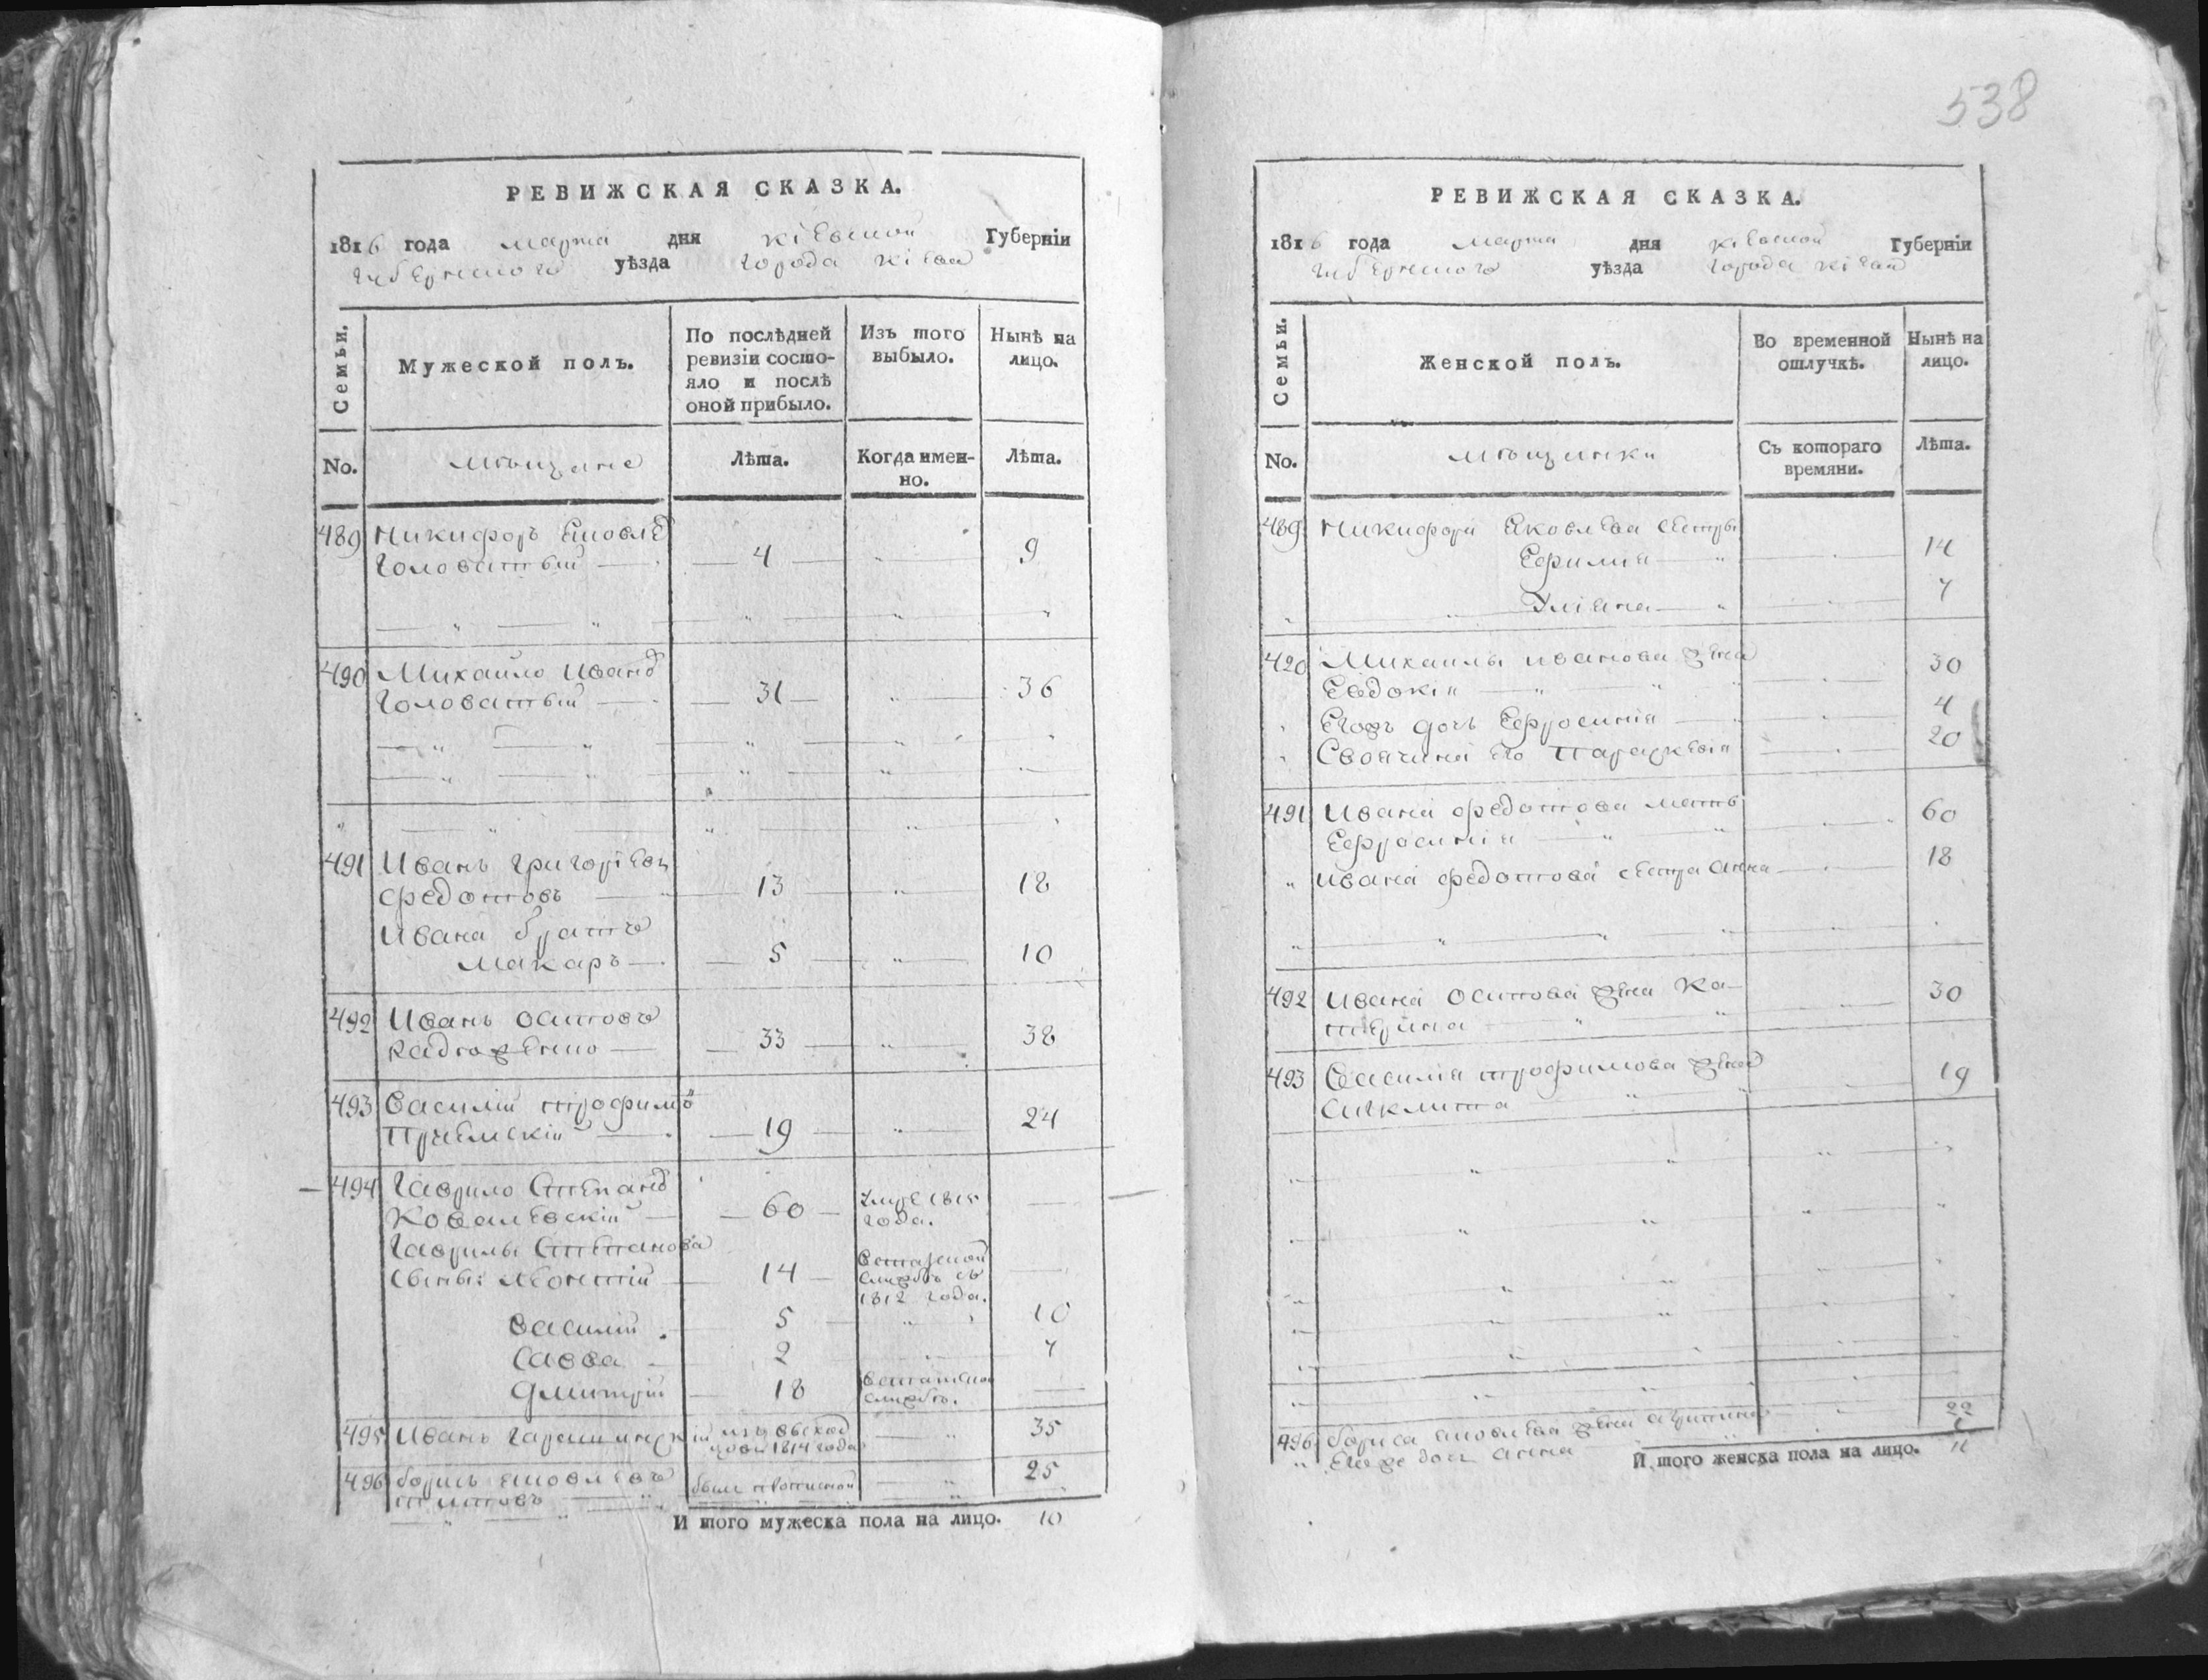 РЕВИЖСКАЯ СКАЗКА.
1816 года марта дня Кіевской Губерніи
Губернского уѣзда города Кіева
Семьи.
Мужеской полъ.
По послѣдней ревизіи состояло и послѣ оной прибыло.
Изъ того выбыло.
Нынѣ на лицо.
No.
мѣщане
Лѣта.
Когда именно.
Лѣта.
489 Никифоръ Яковлевъ
Головатый 4 9
490 Михайло Ивановъ
Головатый 31 36
491 Иванъ Григоріевъ
Федотовъ 13 18
Ивана братъ
Макаръ 5 10
492 Иванъ Осиповъ
33 38
493 Василій Трофимовъ
19 24
494 Гаврило Степановъ
Ковалевскій 60 умре 1815
года.
Гаврилы Степанова
сыны: Леонтій 14
службѣ съ
1812 года.
Василій 5 10
Савва 2 7
Дмитрій 18
службѣ.
495 Иванъ 1814 года 35
496 Борисъ Яковлевъ
Титовъ 25
И того мужеска пола на лицо. 10
538
РЕВИЖСКАЯ СКАЗКА.
1816 года марта дня Кіевской Губерніи
Губернского уѣзда города Кіева
Семьи.
Женской полъ.
Во временной отлучкѣ.
Нынѣ на лицо.
No.
мѣщанки
Съ котораго времяни.
Лѣта.
489 Никифора Яковлева сестры
Ефимия 14
Уліяна 7
420 Михаилы Иванова жена
Евдокія 30
дочь Ефросинія 4
Своячина его Параскевія 20
491 Ивана Федотова мать
Ефросинія 60
Ивана Федотова сестра Анна 18
492 Ивана Осипова жена Ка-
терина 30
493 Василія Трофимова жена
19
496 Бориса Яковлева жена 22
дочь Анна
И того женска пола на лицо. 11